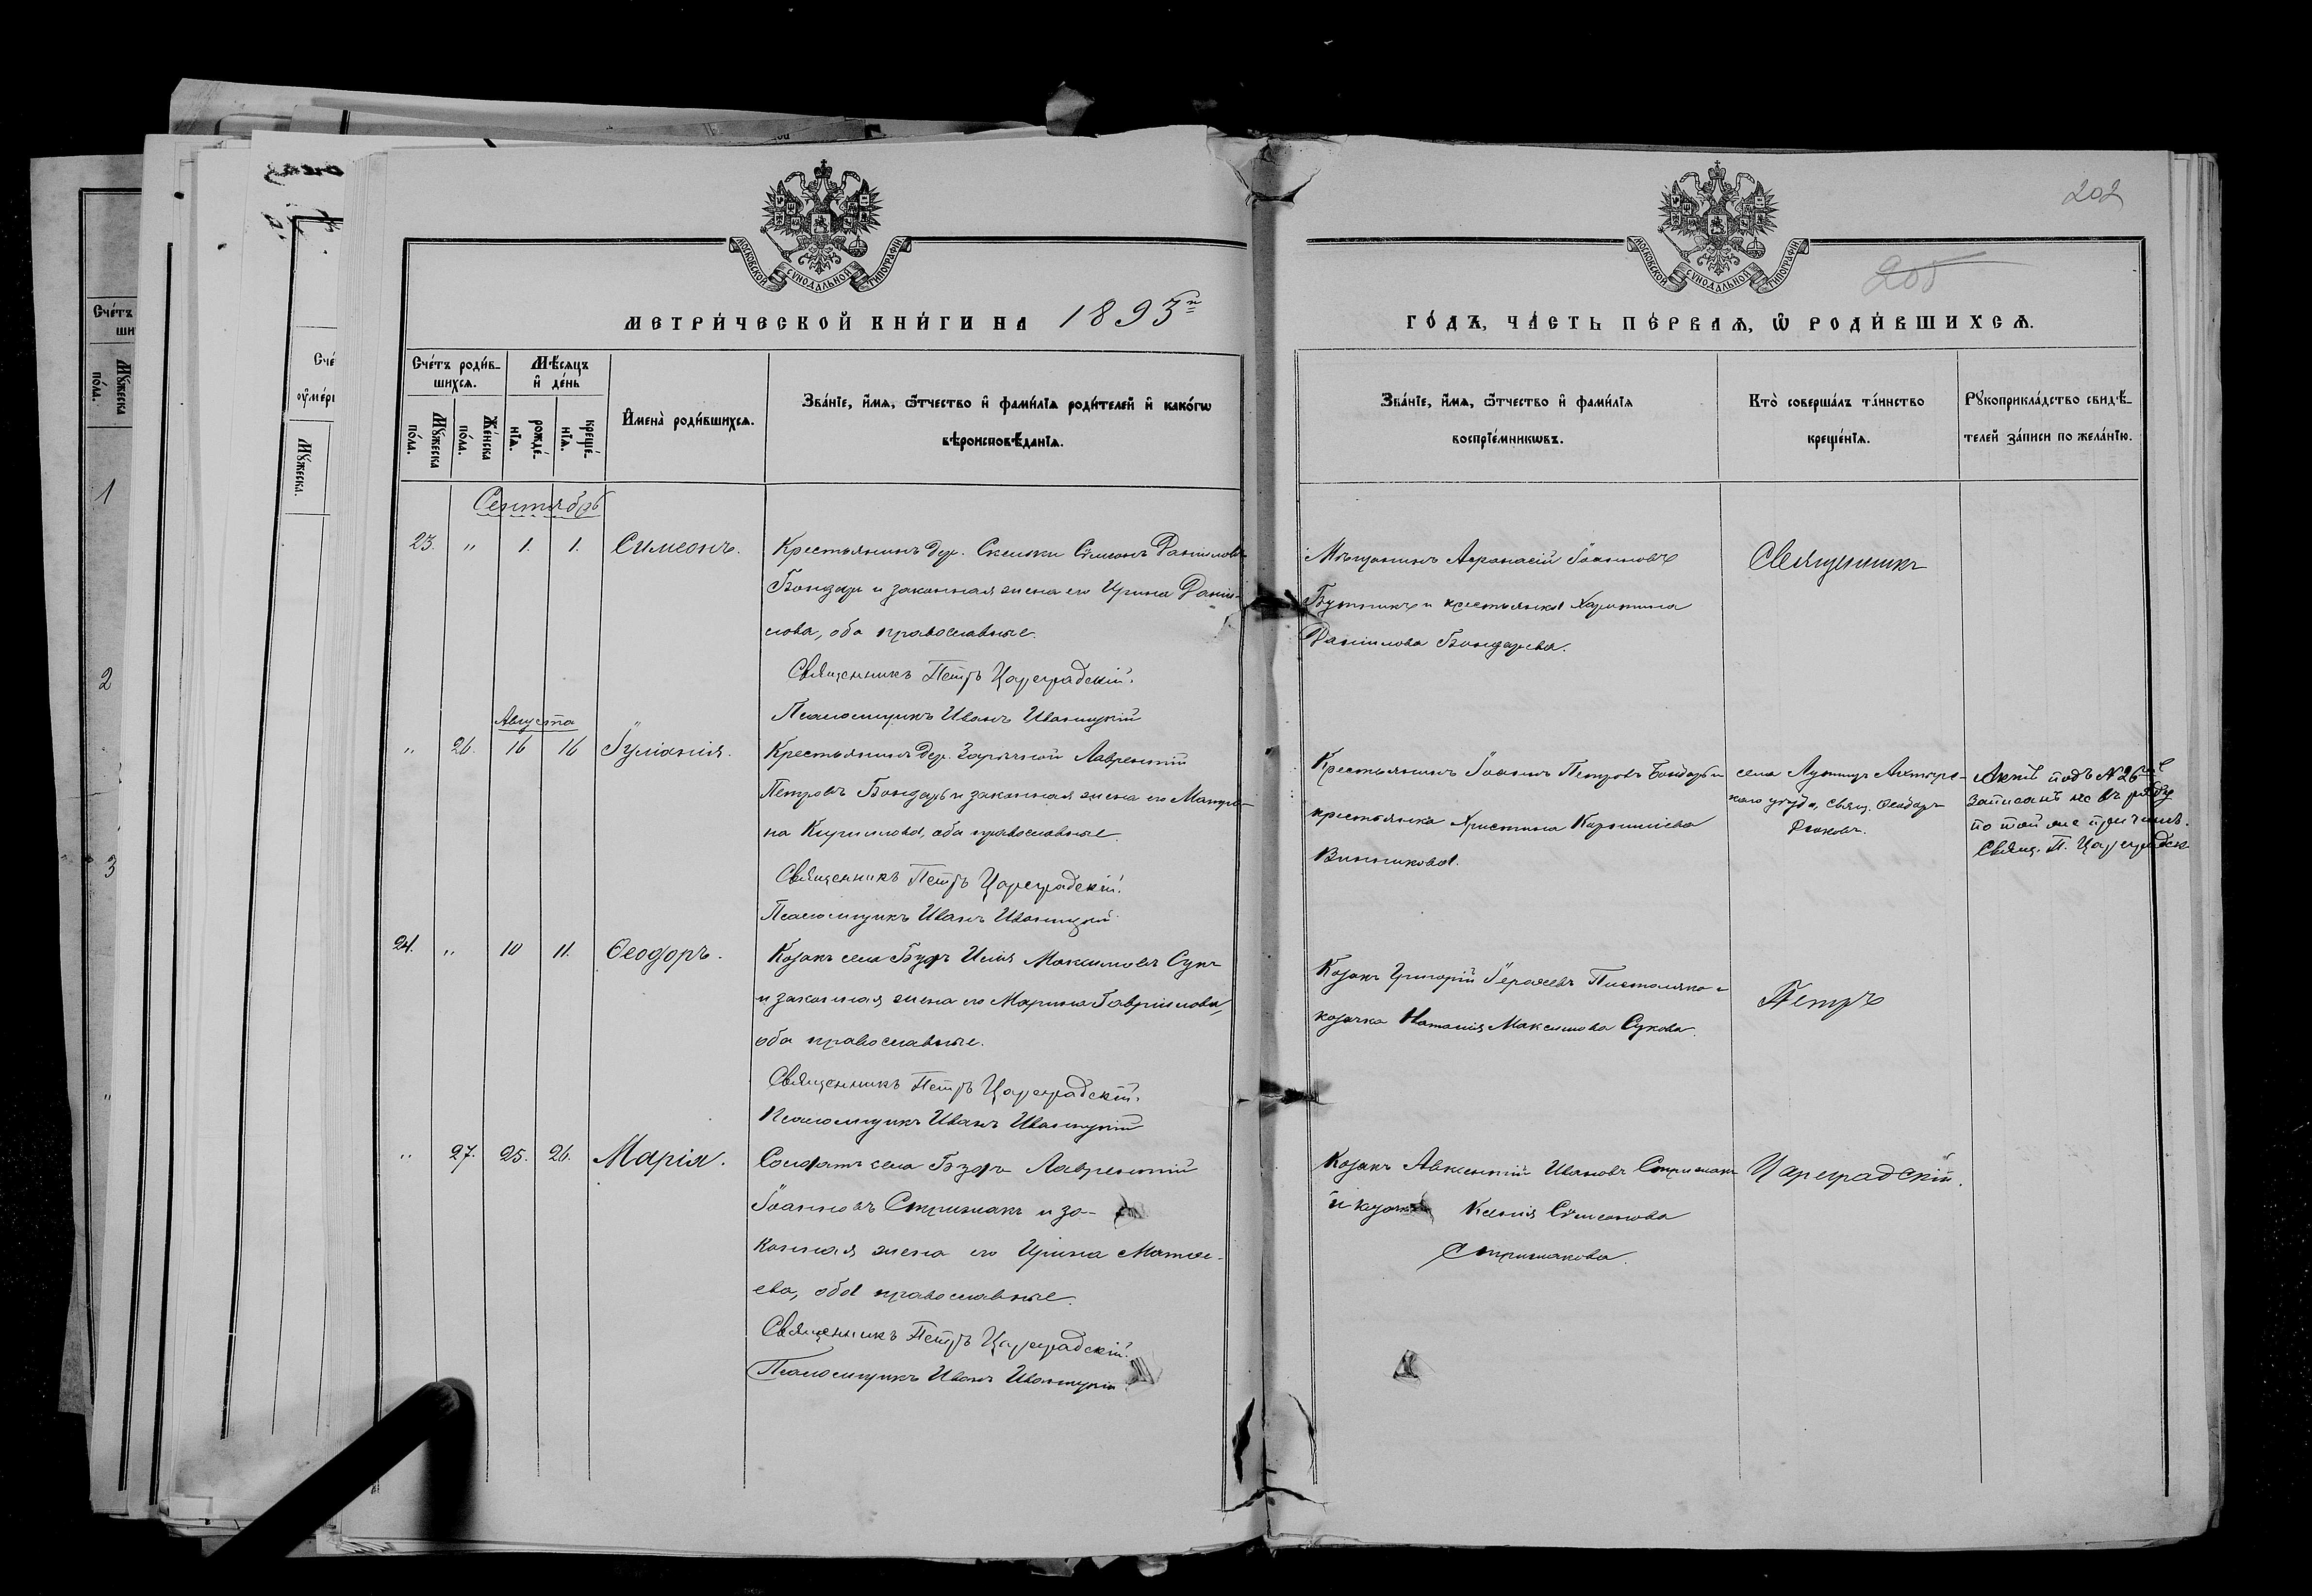 202
205
МОСКОВСКОЙ СѴНОДАЛЬНОЙ ТИПОГРАФІИ
МОСКОВСКОЙ СѴНОДАЛЬНОЙ ТИПОГРАФІИ
МЕТРИ́ЧЕСКОЙ КНИ́ГИ НА 1893й
ГО́ДЪ, ЧА́СТЬ ПЕ́РВАЯ, Ѡ҆ РОДИ́ВШИХСЯ.
Сче́тъ роди́в-
шихся.
Мꙋ́жеска по́ла.
Же́нска по́ла.
Мѣ́сяцъ
и҆ де́нь
рожде́-
нїя.
креще́-
нїя.
И҆мена̀ роди́вшихся.
Зва́нїе, и҆́мя, ѻ҆́тчество и҆ фами́лїя роди́телей и҆ како́гѡ
вѣроисповѣ́данїя.
Зва́нїе, и҆́мя, ѻ҆́тчество и҆ фами́лїя
воспрїе́мникѡвъ.
Кто̀ соверша́лъ та́инство
креще́нїя.
Рꙋкоприкла́дство свидѣ́-
телей за́писи по жела́нїю.
Сентябрь
23. „ 1. 1. Симеонъ.
Крестьянинъ дер. Сѵмеонъ Даніиловъ
Бондарь и законная жена его Ирина Даніи-
лова, оба православные.
Священникъ Петръ Цареградскій.
Псаломщикъ Иванъ Иваницкій
Мѣщанинъ Аѳанасій Іоанновъ
и крестьянка Харитина
Даніилова Бондарева.
Священникъ
Августа
„ 26. 16 16 Іуліанія.
Крестьянинъ дер. Заричной Лаврентій
Петровъ Бондарь и законная жена его Матро-
на Кириллова, оба православные.
Священникъ Петръ Цареградскій.
Псаломщикъ Иванъ Иваницкій
Крестьянинъ Іоаннъ Петровъ Бондарь и
крестьянка Христина
Винникова.
села Ахтырс-
каго уѣзда, свящ. Ѳеодоръ
Актъ подъ № 26
записанъ не въ ряду
по той же причинѣ.
Свящ. П. Цареградск
24. „ 10 11. Ѳеодоръ.
Козакъ села Будъ Илія Максимовъ Сукъ
и законная жена его Марина Гавріилова,
оба православные.
Священникъ Петръ Цареградскій.
Псаломщикъ Иванъ Иваницкій
Козакъ Григорій
козачка Наталія Максимова Сукова.
Петръ
„ 27. 25. 26. Марія.
Солдатъ села Будъ Лаврентій
Іоанновъ Стрижакъ и за-
конная жена его Ирина Матѳе-
ева, оба православные.
Священникъ Петръ Цареградскій.
Псаломщикъ Иванъ Иваницкій
Козакъ Авксентій Ивановъ Стрижакъ
и козачка Ксенія Сѵмеонова
Стрижакова.
Цареградскій.
Сче́тъ
ши
Мꙋ́жеска
по́ла.
1
2
3
Сче́
ѹ҆ме́рш
Мꙋ́жеска.